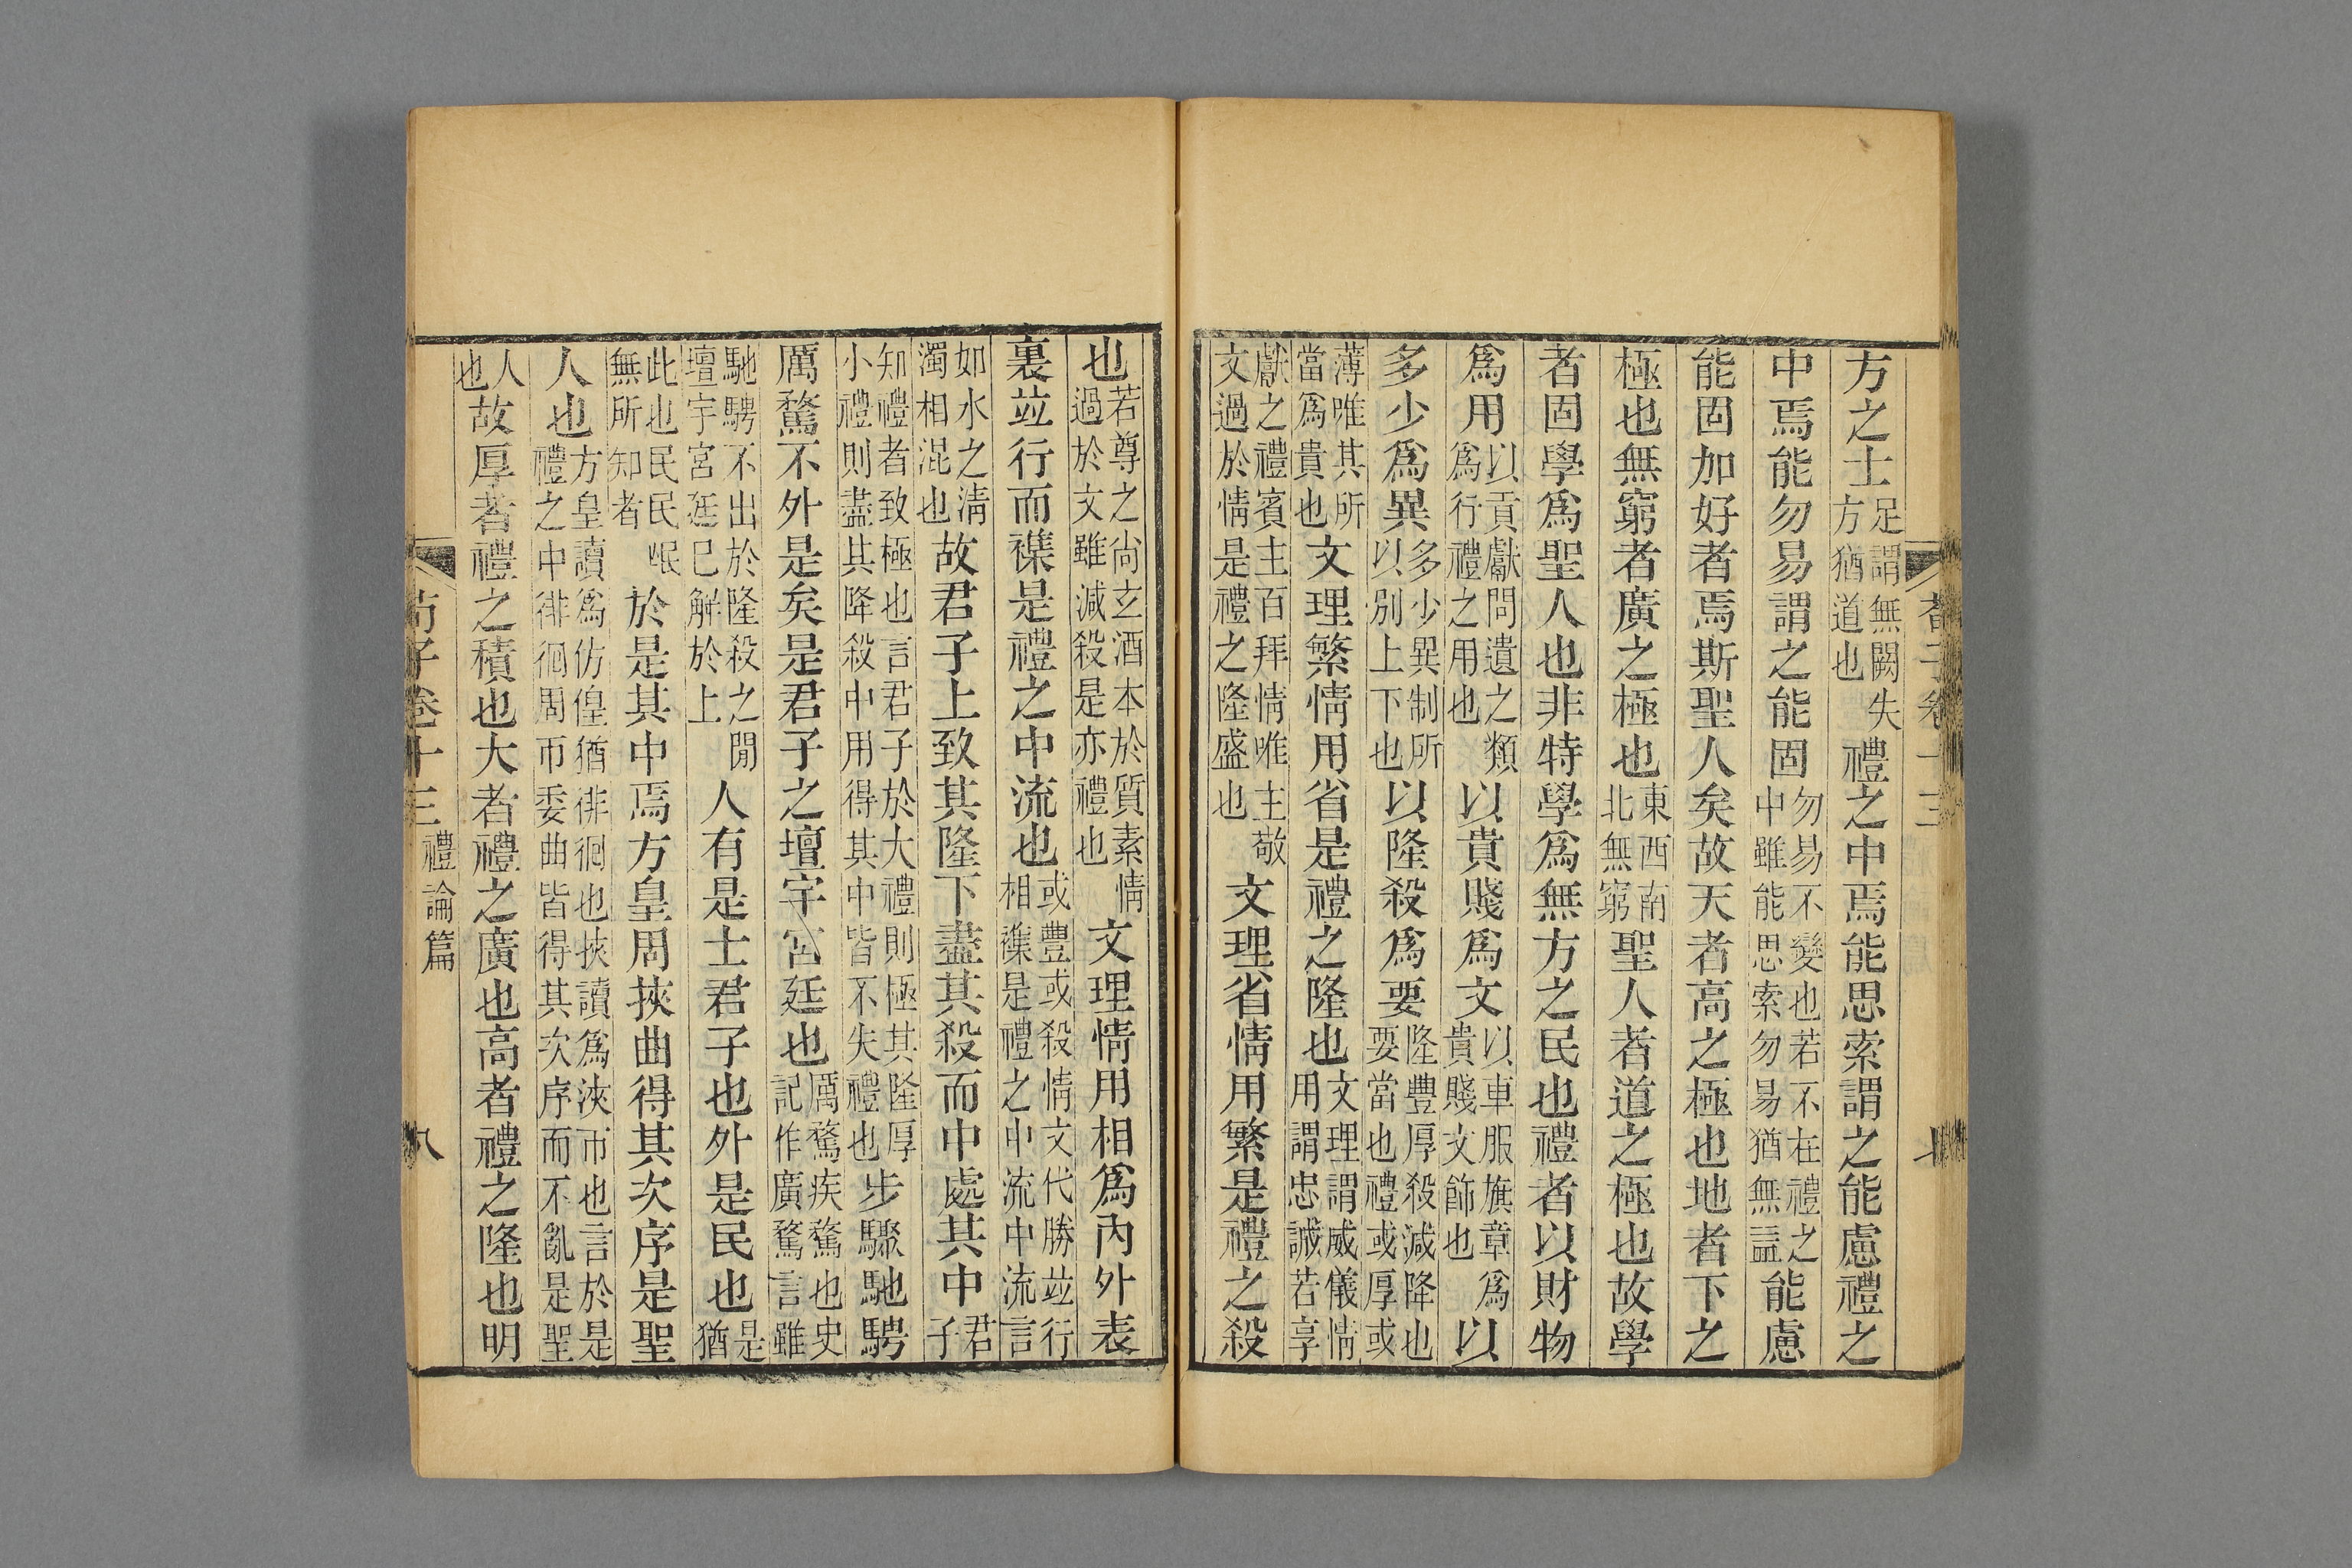 方之士足謂無闕失方猶道也禮之中焉能思索謂之能慮禮之
中焉能勿易謂之能固勿易不變也若不在禮之中雖能思索勿易猶無益能慮
能固加好者焉斯聖人矣故天者高之極也地者下之
極也無窮者廣之極也東西南北無窮聖人者道之極也故學
者固學爲聖人也非特學爲無方之民也禮者以財物
爲用以貢獻問遺之類爲行禮之用也以貴賤爲文以車服旗章爲貴賤文飾也以
多少爲異多少異制所以別上下也以隆殺爲要隆豐厚殺減降也要當也禮或厚或
薄唯其所當爲貴也文理繁情用省是禮之隆也文理謂威儀情用謂忠誠若享
獻之禮賓主百拜情唯主敬文過於情是禮之隆盛也文理省情用繁是禮之殺
也若尊之尚玄酒本於質素情過於文雖減殺是亦禮也文理情用相爲內外表
裏竝行而襍是禮之中流也或豐或殺情文代勝竝行相襍是禮之中流中流言
如水之淸濁相混也故君子上致其隆下盡其殺而中處其中君子
知禮者致極也言君子於大禮則極其隆厚小禮則盡其降殺中用得其中皆不失禮也步驟馳騁
厲騖不外是矣是君子之壇宇宮廷也厲騖疾騖也史記作廣騖言雖
馳騁不出於隆殺之閒壇宇宮廷巳解於上人有是士君子也外是民也是猶
此也民民氓無所知者於是其中焉方皇周挾曲得其次序是聖
人也方皇讀爲仿偟猶徘徊也挾讀爲浹帀也言於是禮之中徘徊周帀委曲皆得其次序而不亂是聖
人也故厚者禮之積也大者禮之廣也高者禮之隆也明
荀子卷十三 禮論篇 八